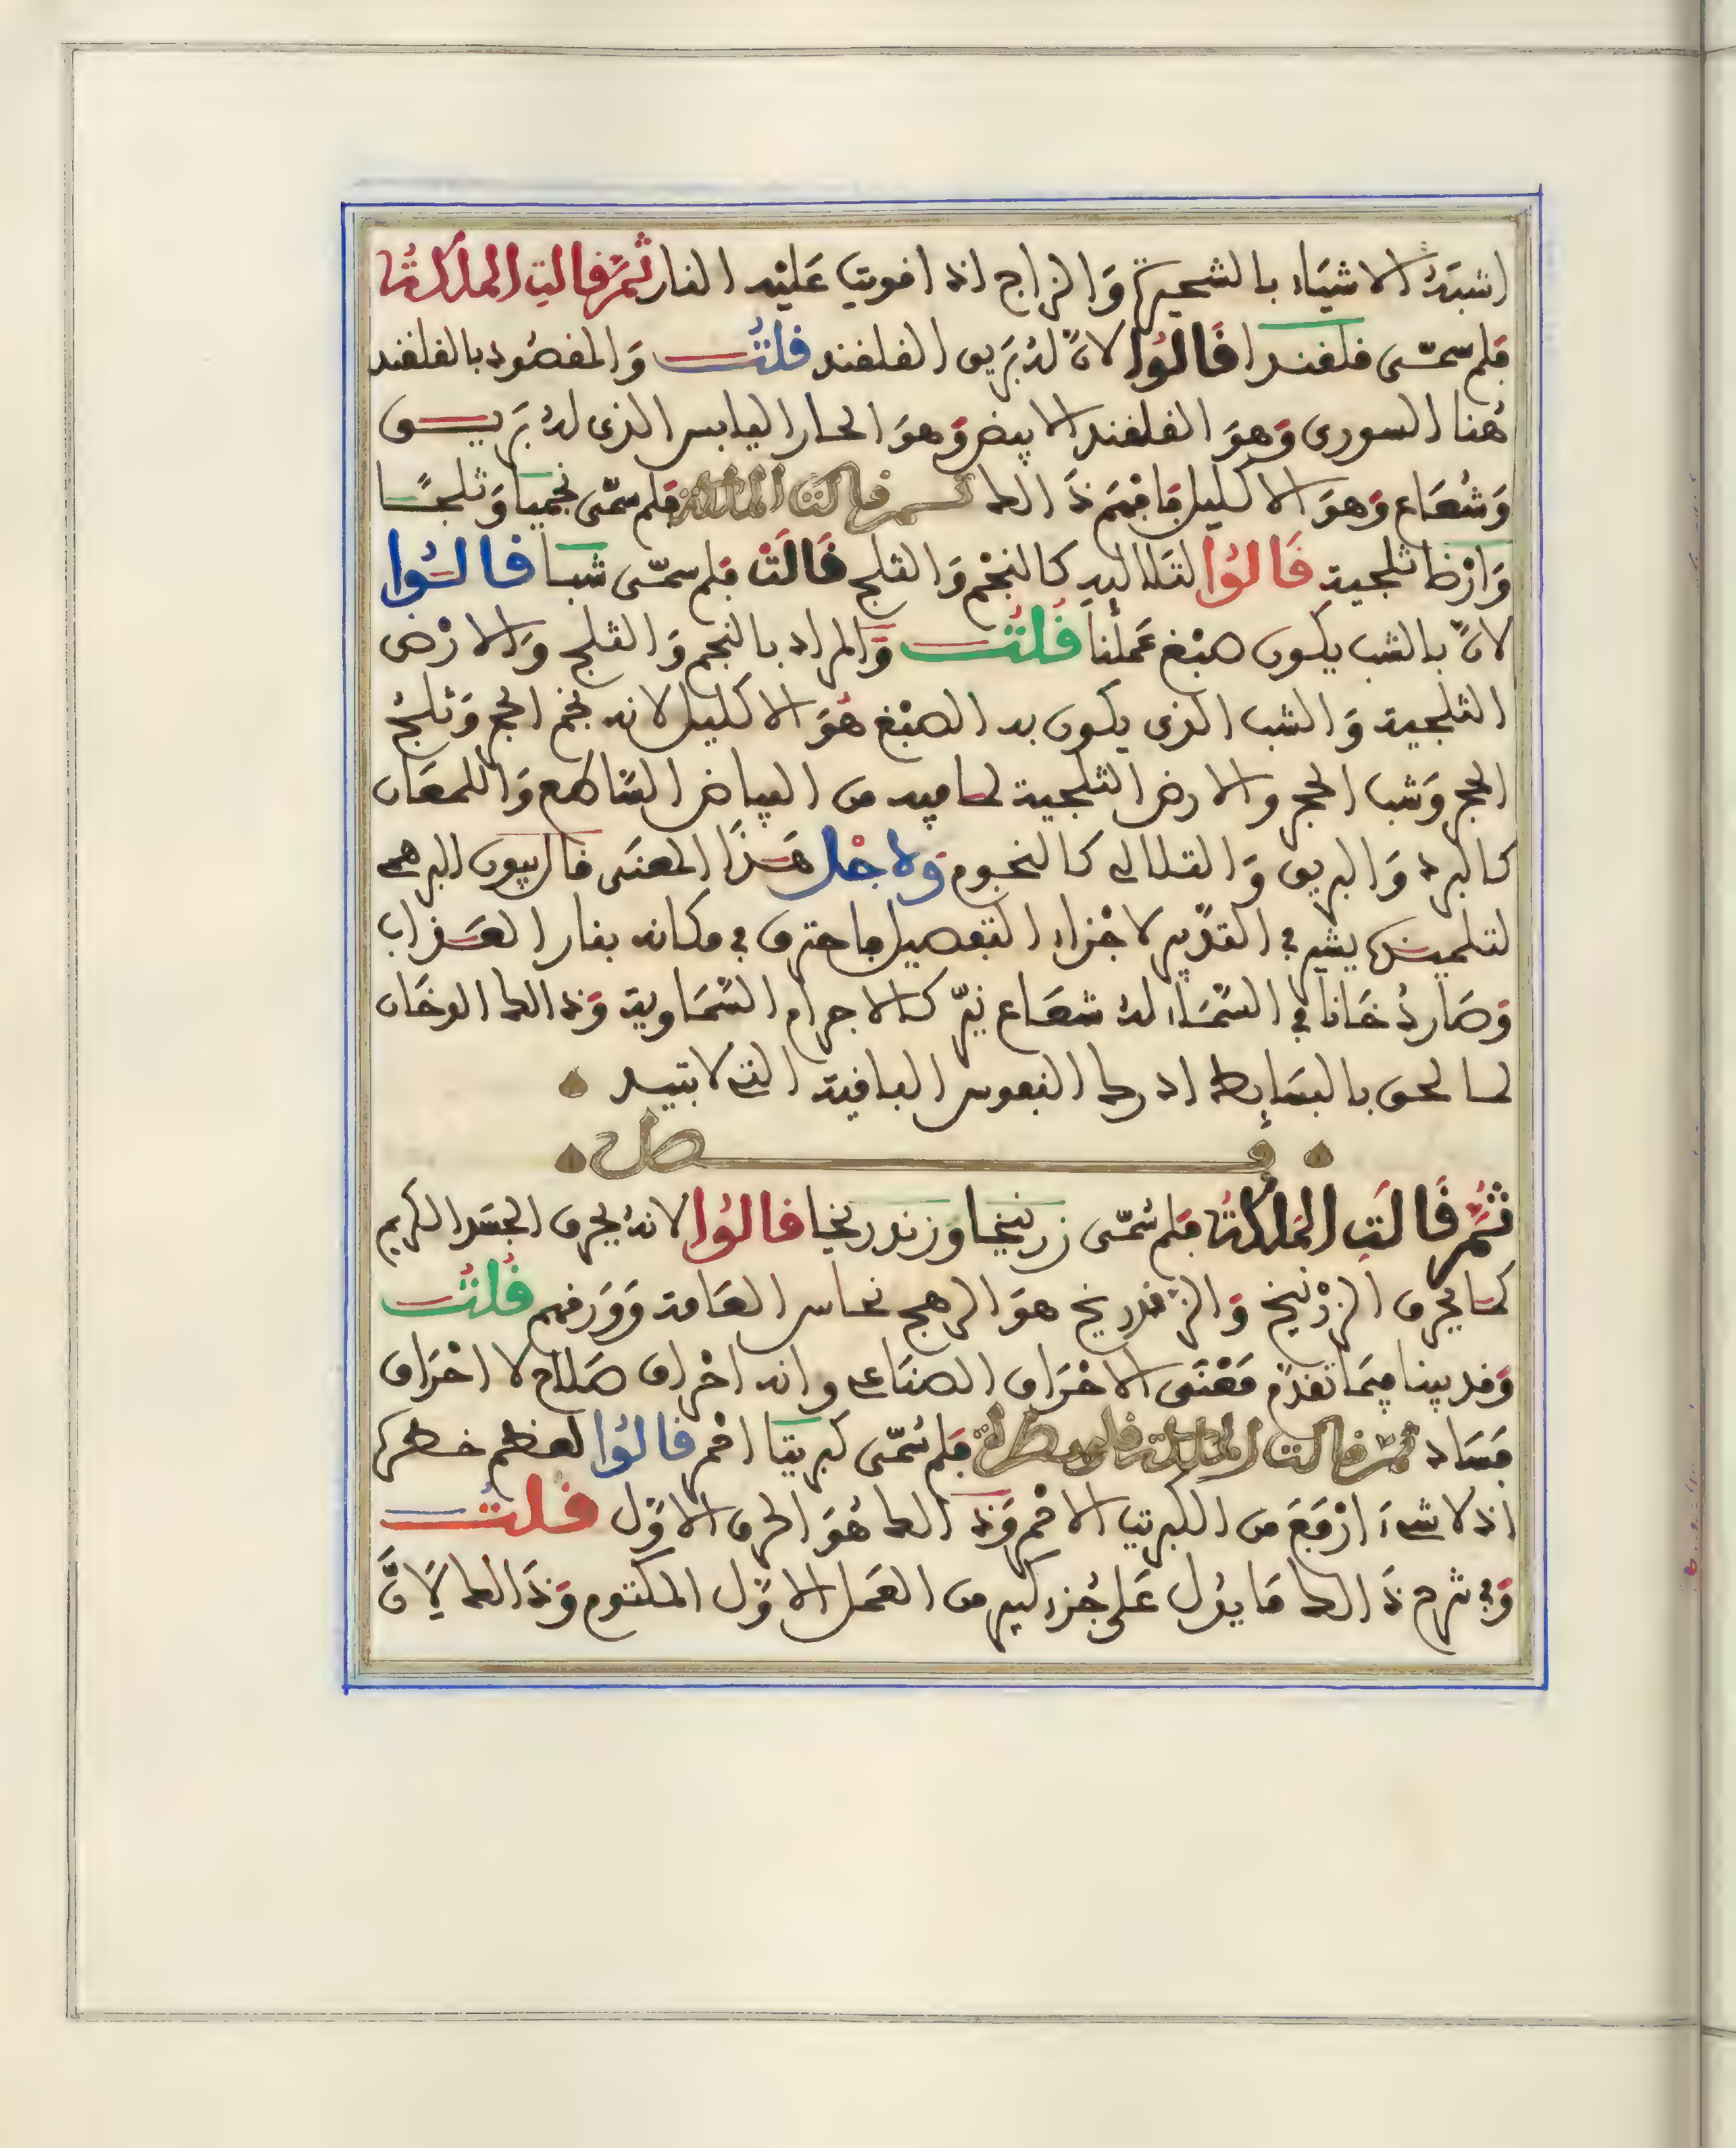 اشبَهُ الاشيَاء بالشحيرة وَالزاج اذا قويت عَليْه النار ثمَّ قالتِ الملكةُ
فلم سمّى قلقندا قَالوُا لانّ لهُ بَريق القلقند قلتُ وَالمقصُود بالقلقند
هُنا السورى وَهوَ القلقند الابيض وَهوَ الحار اليابس الذى لهُ بَريق
وَشُعَاع وَهوَ الاكليل فافهَم ذَالك ثم قالت الملكة فلم سمّى نجميا وَثلجيًا
وَارْضا ثلجية قَالوُا لتلاليه كالنجْم وَالثلج قَالَتْ فلم سمّى شبا قالُوا
لانّ بالشب يكون صبْغ عَملنا قُلتُ وَالمراد بالنجم وَالثلج وَالارْض
الثلجية وَالشب الذى يكون به الصبْغ هُوَ الاكليل لانه نجم الحجر وَثلجُ
الحجر وَشب الحجر والارض الثلجية لما فيه من البياض السَّاطع وَاللمعَان
كالبرد وَالبريق وَالتلالى كالنجوم وَلاجْل هَذا المعنَى قال بيون البرهمى
لتلميذه يشير فى القدّيم لاجْزاء التفصيل فاحترق فى مكانه بنار العَذاب
وَصَار دُخَانا فى السَّمَاء لهُ شعَاع نيّر كالاجرام السَّمَاوية وَذالك الدخَان
لما لحق بالبسَايط ادرك النفوس الباقية التى لا تبيد
فصل
ثمَّ قَالَتِ المَلكةُ فلم سُمّى زرنيخا وزندريخا قالوُا لانهُ يحرق الجسَد الكريم
كما يحرق الزرْنيخ وَالزندريخ هوَ الرهج نحاس العَامة وَوَرقهم قُلتُ
وَقد بينا فيمَا تقدّم مَعْنَى الاحْرَاق الصنَاعى وانه احْراق صَلاح لا احْرَاق
فسَاد ثمّ قالت الملكة فلم سُمّى كبريتا احْمر قالوُا لعظم خطره
اذ لا شىءَ ارْفَعَ من الكبريت الاحْمر وَذالك هُوَ الحرق الاوّل قلتُ
وَفى شرح ذَالك مَا يدُل عَلى جُزء كبير من العَمل الاوّل المكتوم وَذَالك لِانَّ